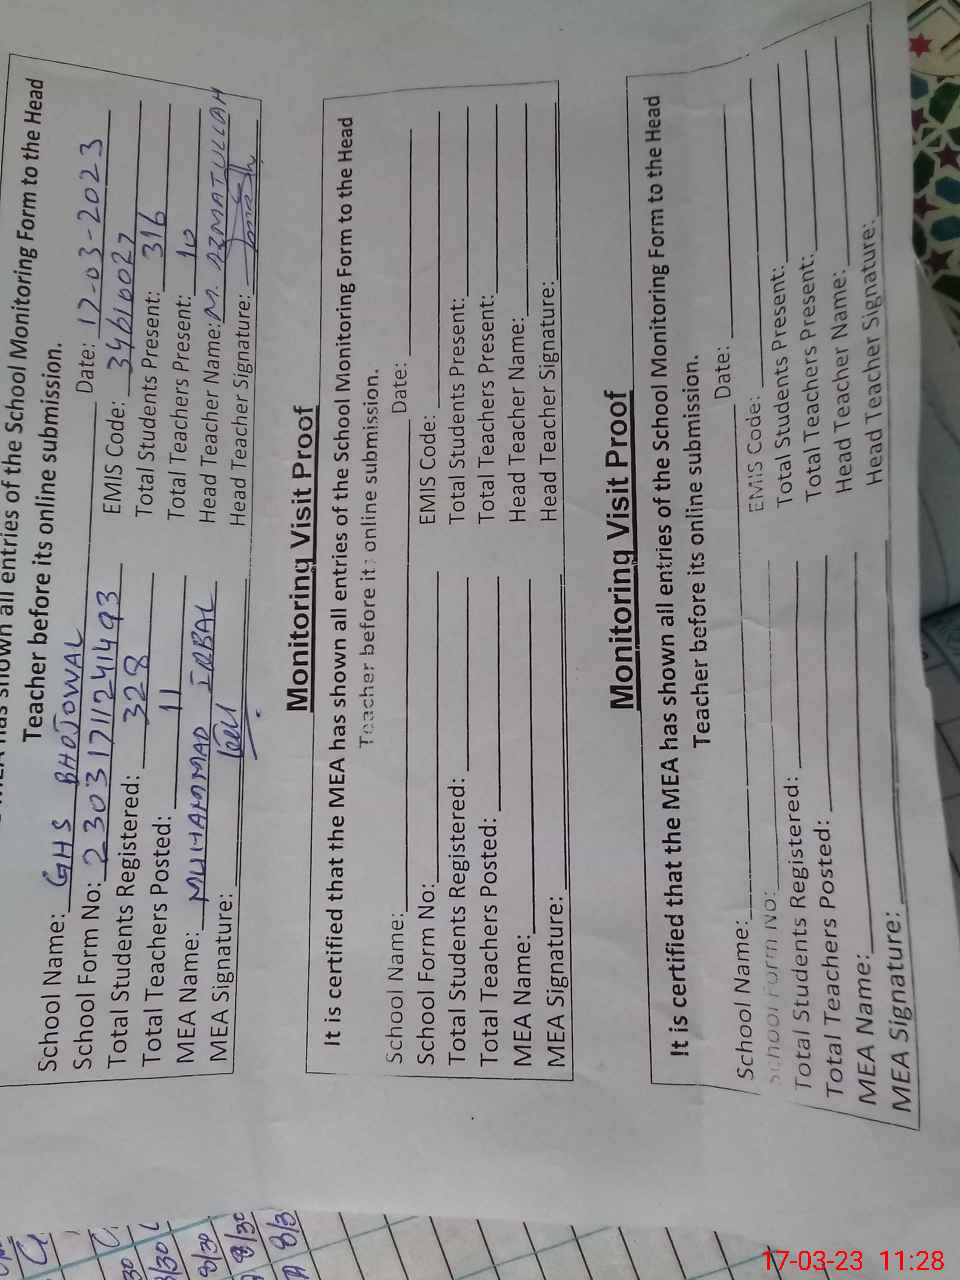 MEA has shown all entries of the School Monitoring Form to the Head
Teacher before its online submission.
School Name: GHS BHOJOWAL Date: 17-03-2023
School Form No: 23031711241493 EMIS Code: 34610027
Total Students Registered: 328 Total Students Present: 316
Total Teachers Posted: 11 Total Teachers Present: 10
MEA Name: MUHAMMAD IQBAL Head Teacher Name: M. AZMATULLAH
MEA Signature: Head Teacher Signature:
Monitoring Visit Proof
It is certified that the MEA has shown all entries of the School Monitoring Form to the Head
Teacher before its online submission.
School Name: Date:
School Form No: EMIS Code:
Total Students Registered: Total Students Present:
Total Teachers Posted: Total Teachers Present:
MEA Name: Head Teacher Name:
MEA Signature: Head Teacher Signature:
Monitoring Visit Proof
It is certified that the MEA has shown all entries of the School Monitoring Form to the Head
Teacher before its online submission.
School Name: Date:
School Form No: EMIS Code:
Total Students Registered: Total Students Present:
Total Teachers Posted: Total Teachers Present:
MEA Name: Head Teacher Name:
MEA Signature: Head Teacher Signature:
8/30
8/30
17-03-23 11:28